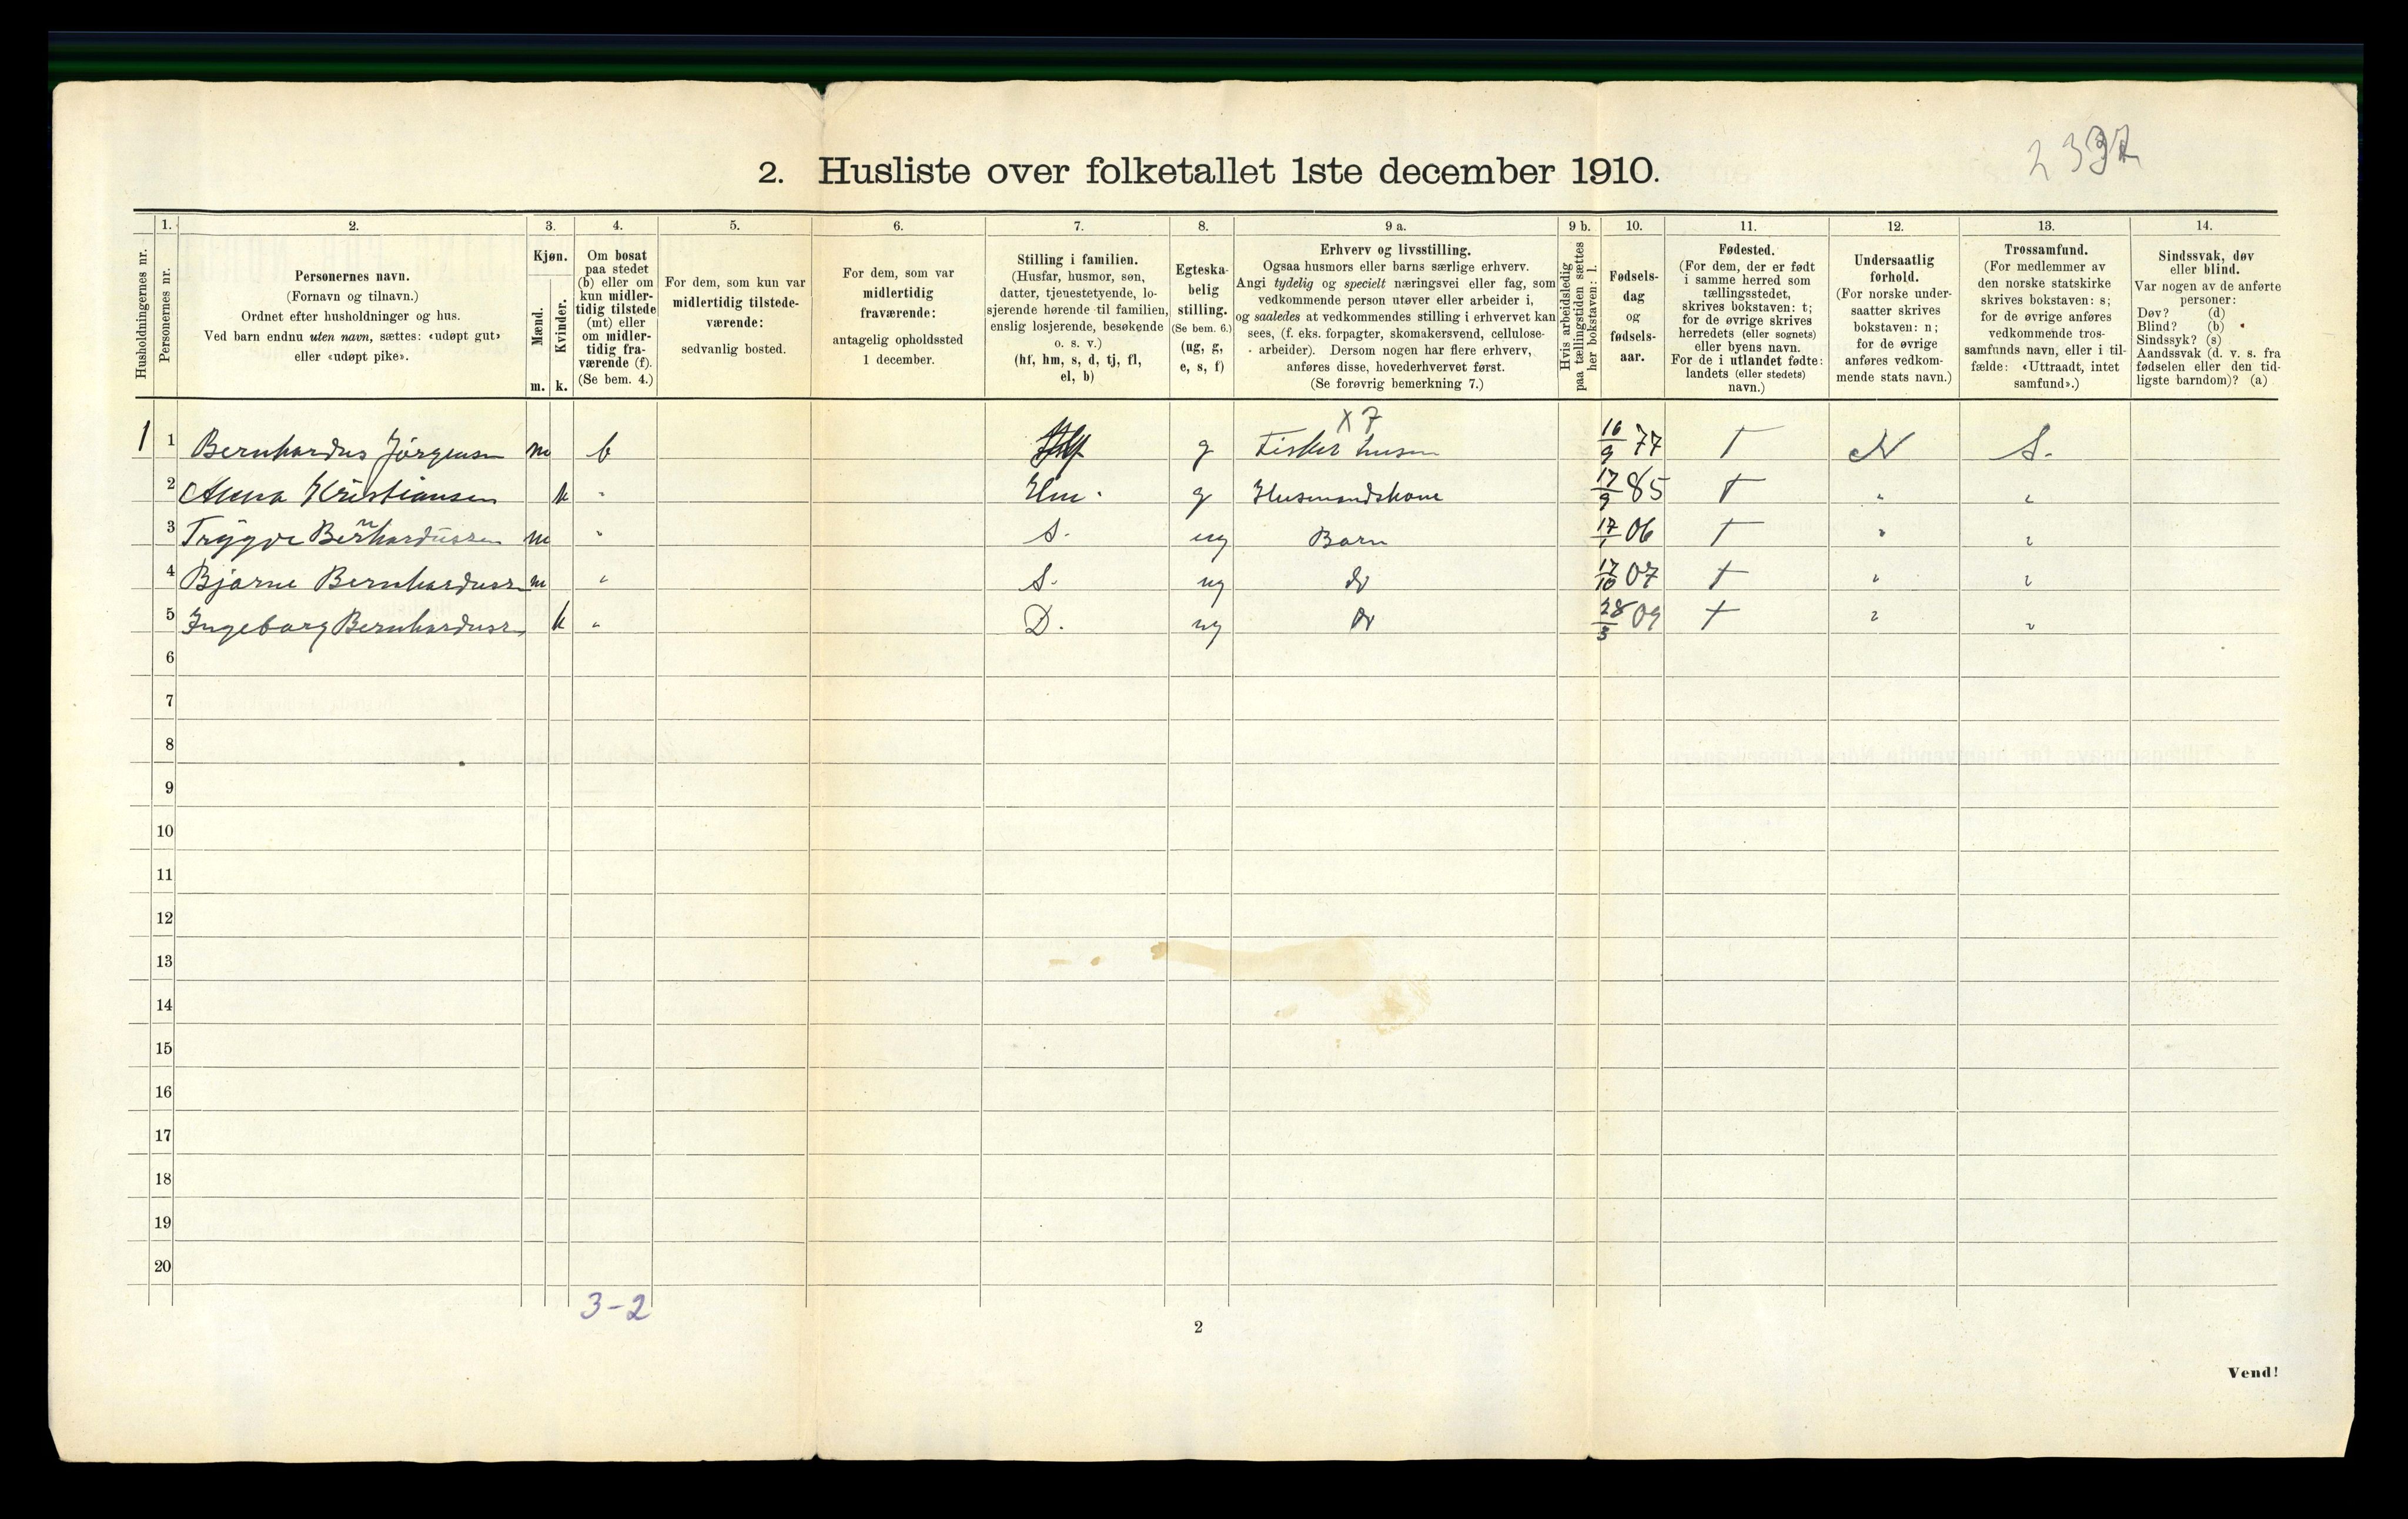 2. Husliste over folketallet 1ste december 1910.
Husholdningernes nr.
1.
Personernes nr.
2.
Personernes navn.
(Fornavn og tilnavn.)
Ordnet efter husholdninger og hus.
Ved barn endnu uten navn, sættes: «udøpt gut»
eller «udøpt pike».
3.
Kjøn.
Mænd.
m.
Kvinder.
k.
4.
Om bosat
paa stedet
(b) eller om
kun midler-
tidig tilstede
(mt) eller
om midler-
tidig fra-
værende (f).
(Se bem. 4.)
5.
For dem, som kun var
midlertidig tilstede-
værende:
sedvanlig bosted.
6.
For dem, som var
midlertidig
fraværende:
antagelig opholdssted
1 december.
7.
Stilling i familien.
(Husfar, husmor, søn,
datter, tjenestetyende, lo-
sjerende hørende til familien,
enslig losjerende, besøkende
o. s. v.)
(hf, hm, s, d, tj, fl,
el, b)
8.
Egteska-
belig
stilling.
(Se bem. 6.)
(ug, g,
e, s, f)
9 a.
Erhverv og livsstilling.
Ogsaa husmors eller barns særlige erhverv.
Angi tydelig og specielt næringsvei eller fag, som
vedkommende person utøver eller arbeider i,
og saaledes at vedkommendes stilling i erhvervet kan
sees, (f. eks. forpagter, skomakersvend, cellulose-
arbeider). Dersom nogen har flere erhverv,
anføres disse, hovederhvervet først.
(Se forøvrig bemerkning 7.)
9 b.
Hvis arbeidsledig
paa tællingstiden sættes
her bokstaven: l.
10.
Fødsels-
dag
og
fødsels-
aar.
11.
Fødested.
(For dem, der er født
i samme herred som
tællingsstedet,
skrives bokstaven: t;
for de øvrige skrives
herredets (eller sognets)
eller byens navn.
For de i utlandet fødte:
landets (eller stedets)
navn.)
12.
Undersaatlig
forhold.
(For norske under-
saatter skrives
bokstaven: n;
for de øvrige
anføres vedkom-
mende stats navn.)
13.
Trossamfund.
(For medlemmer av
den norske statskirke
skrives bokstaven: s;
for de øvrige anføres
vedkommende tros-
samfunds navn, eller i til-
fælde: «Uttraadt, intet
samfund».)
14.
Sindssvak, døv
eller blind.
Var nogen av de anførte
personer:
Døv? (d)
Blind? (b)
Sindssyk? (s)
Aandssvak (d. v. s. fra
fødselen eller den tid-
ligste barndom)? (a)
X 7
1 1 Bernhardus Jørgensen m b g Fisker husm 16/9 77 T N S.
2 Anna Kristiansen k " Hm. g Husmandskone 17/9 85 T " "
3 Trygve Bernhardussen m " S. ug Barn 17/1 06 T " "
4 Bjarne Bernhardussn m " S. ug do 17/10 07 T " "
5 Ingeborg Bernhardussn k " D. ug do 28/3 09 T " "
6
7
8
9
10
11
12
13
14
15
16
17
18
19
20
3-2
2
Vend!